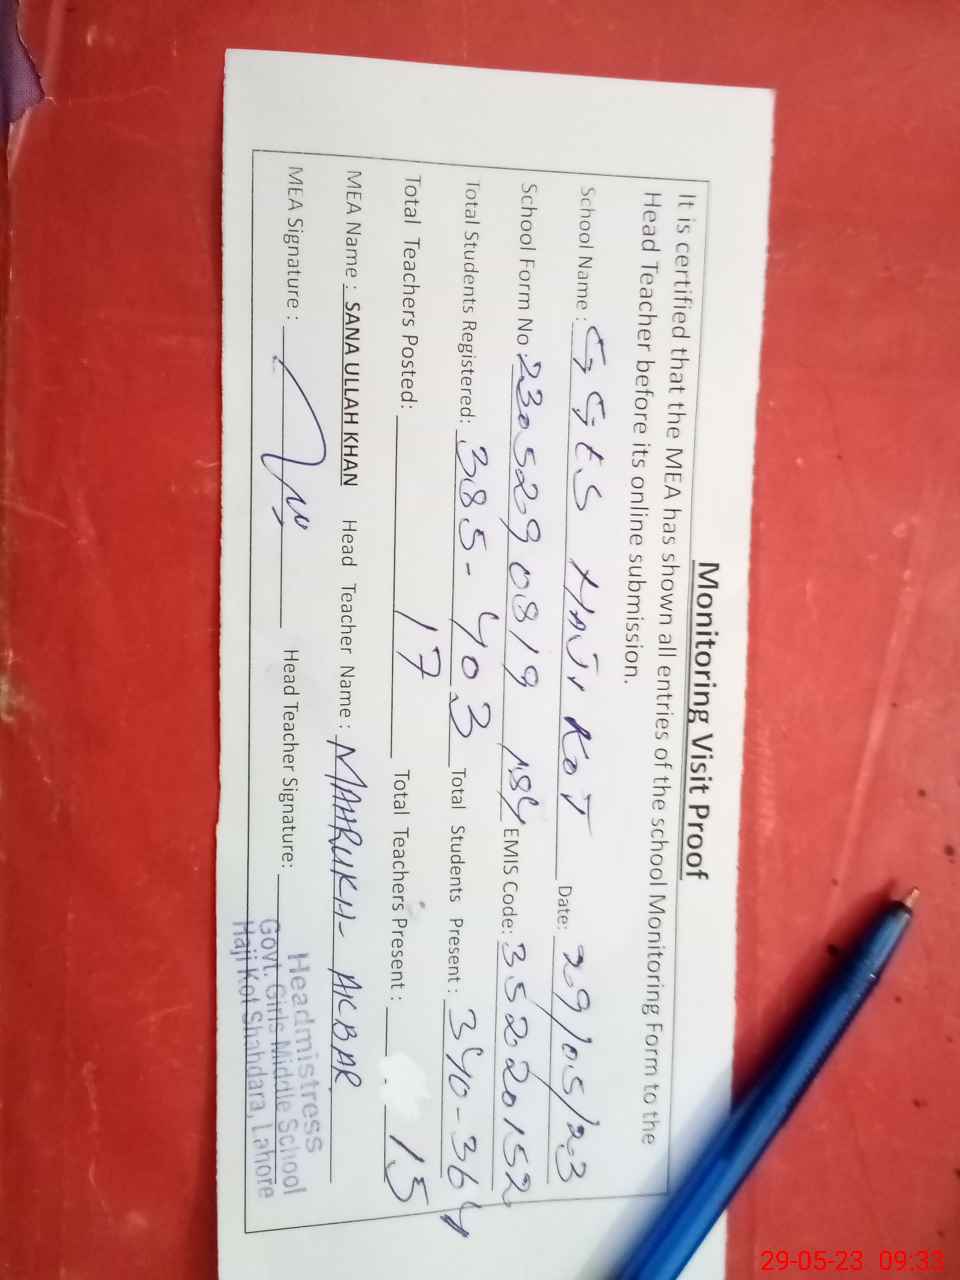 Monitoring Visit Proof
It is certified that the MEA has shown all entries of the school Monitoring Form to the
Head Teacher before its online submission.
School Name : GGES HAJI KOT Date: 29/05/23
School Form No 230529 0819 184 EMIS Code: 35220152
Total Students Registered: 385-403 Total Students Present : 340-364
Total Teachers Posted: 17 Total Teachers Present : 15
MEA Name : SANA ULLAH KHAN Head Teacher Name : MAHRUKH- AKBAR
MEA Signature : Head Teacher Signature:
Headmistress
Govt. Girls Middle School
Haji Kot Shahdara, Lahore
29-05-23 09:33